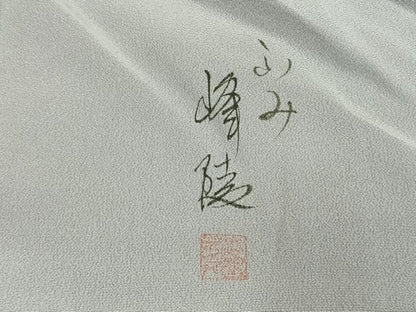 ふみ
峰陵